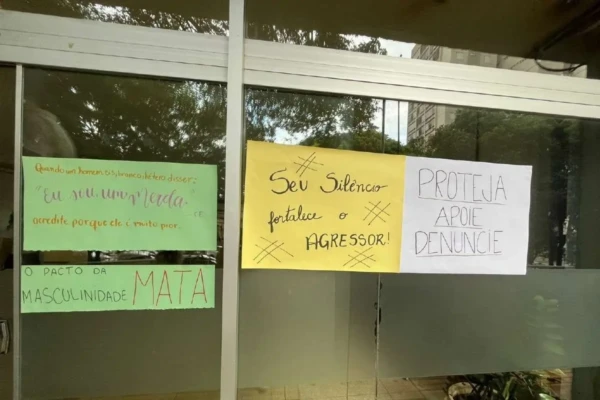 Quando um homem
disser:
"Eu sou um merda"
acredite, porque ele é muito pior.
O PACTO DA
MASCULINIDADE MATA
SEU SilêNcio
fortalece o
AGRESSOR!
PROTEJA
APOIE
DENUNCIE